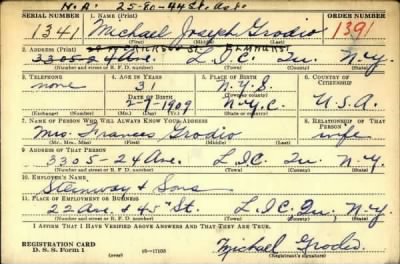 N.A. 25-80-44 St. Ast.
SERIAL NUMBER 1. NAME (Print) ORDER NUMBER
1341 Michael Joseph Grodio 1391
(First) (Middle) (Last)
ELMHURST
2. ADDRESS (Print)
3305-24 Ave. L.I.C. Qu. N.Y.
(Number and street or R. F. D. number) (Town) (County) (State)
3. TELEPHONE 4. AGE IN YEARS 5. PLACE OF BIRTH 6. COUNTRY OF CITIZENSHIP
none 31 N.Y.C. U.S.A.
DATE OF BIRTH
2-9-1909 N.Y.C.
(Exchange) (Number) (Mo.) (Day) (Yr.) (State or country)
7. NAME OF PERSON WHO WILL ALWAYS KNOW YOUR ADDRESS 8. RELATIONSHIP OF THAT PERSON
Mrs. Frances Grodio wife
(Mr., Mrs., Miss) (First) (Middle) (Last)
9. ADDRESS OF THAT PERSON
3305-24 Ave. L.I.C. Qu. N.Y.
(Number and street or R. F. D. number) (Town) (County) (State)
10. EMPLOYER'S NAME
Steinway & Sons
11. PLACE OF EMPLOYMENT OR BUSINESS
22 Ave. & 45th St. L.I.C. Qu. N.Y.
(Number and street or R. F. D. number) (Town) (County) (State)
I AFFIRM THAT I HAVE VERIFIED ABOVE ANSWERS AND THAT THEY ARE TRUE.
REGISTRATION CARD
D. S. S. Form 1 16—17105 Michael Grodio
(Registrant's signature)